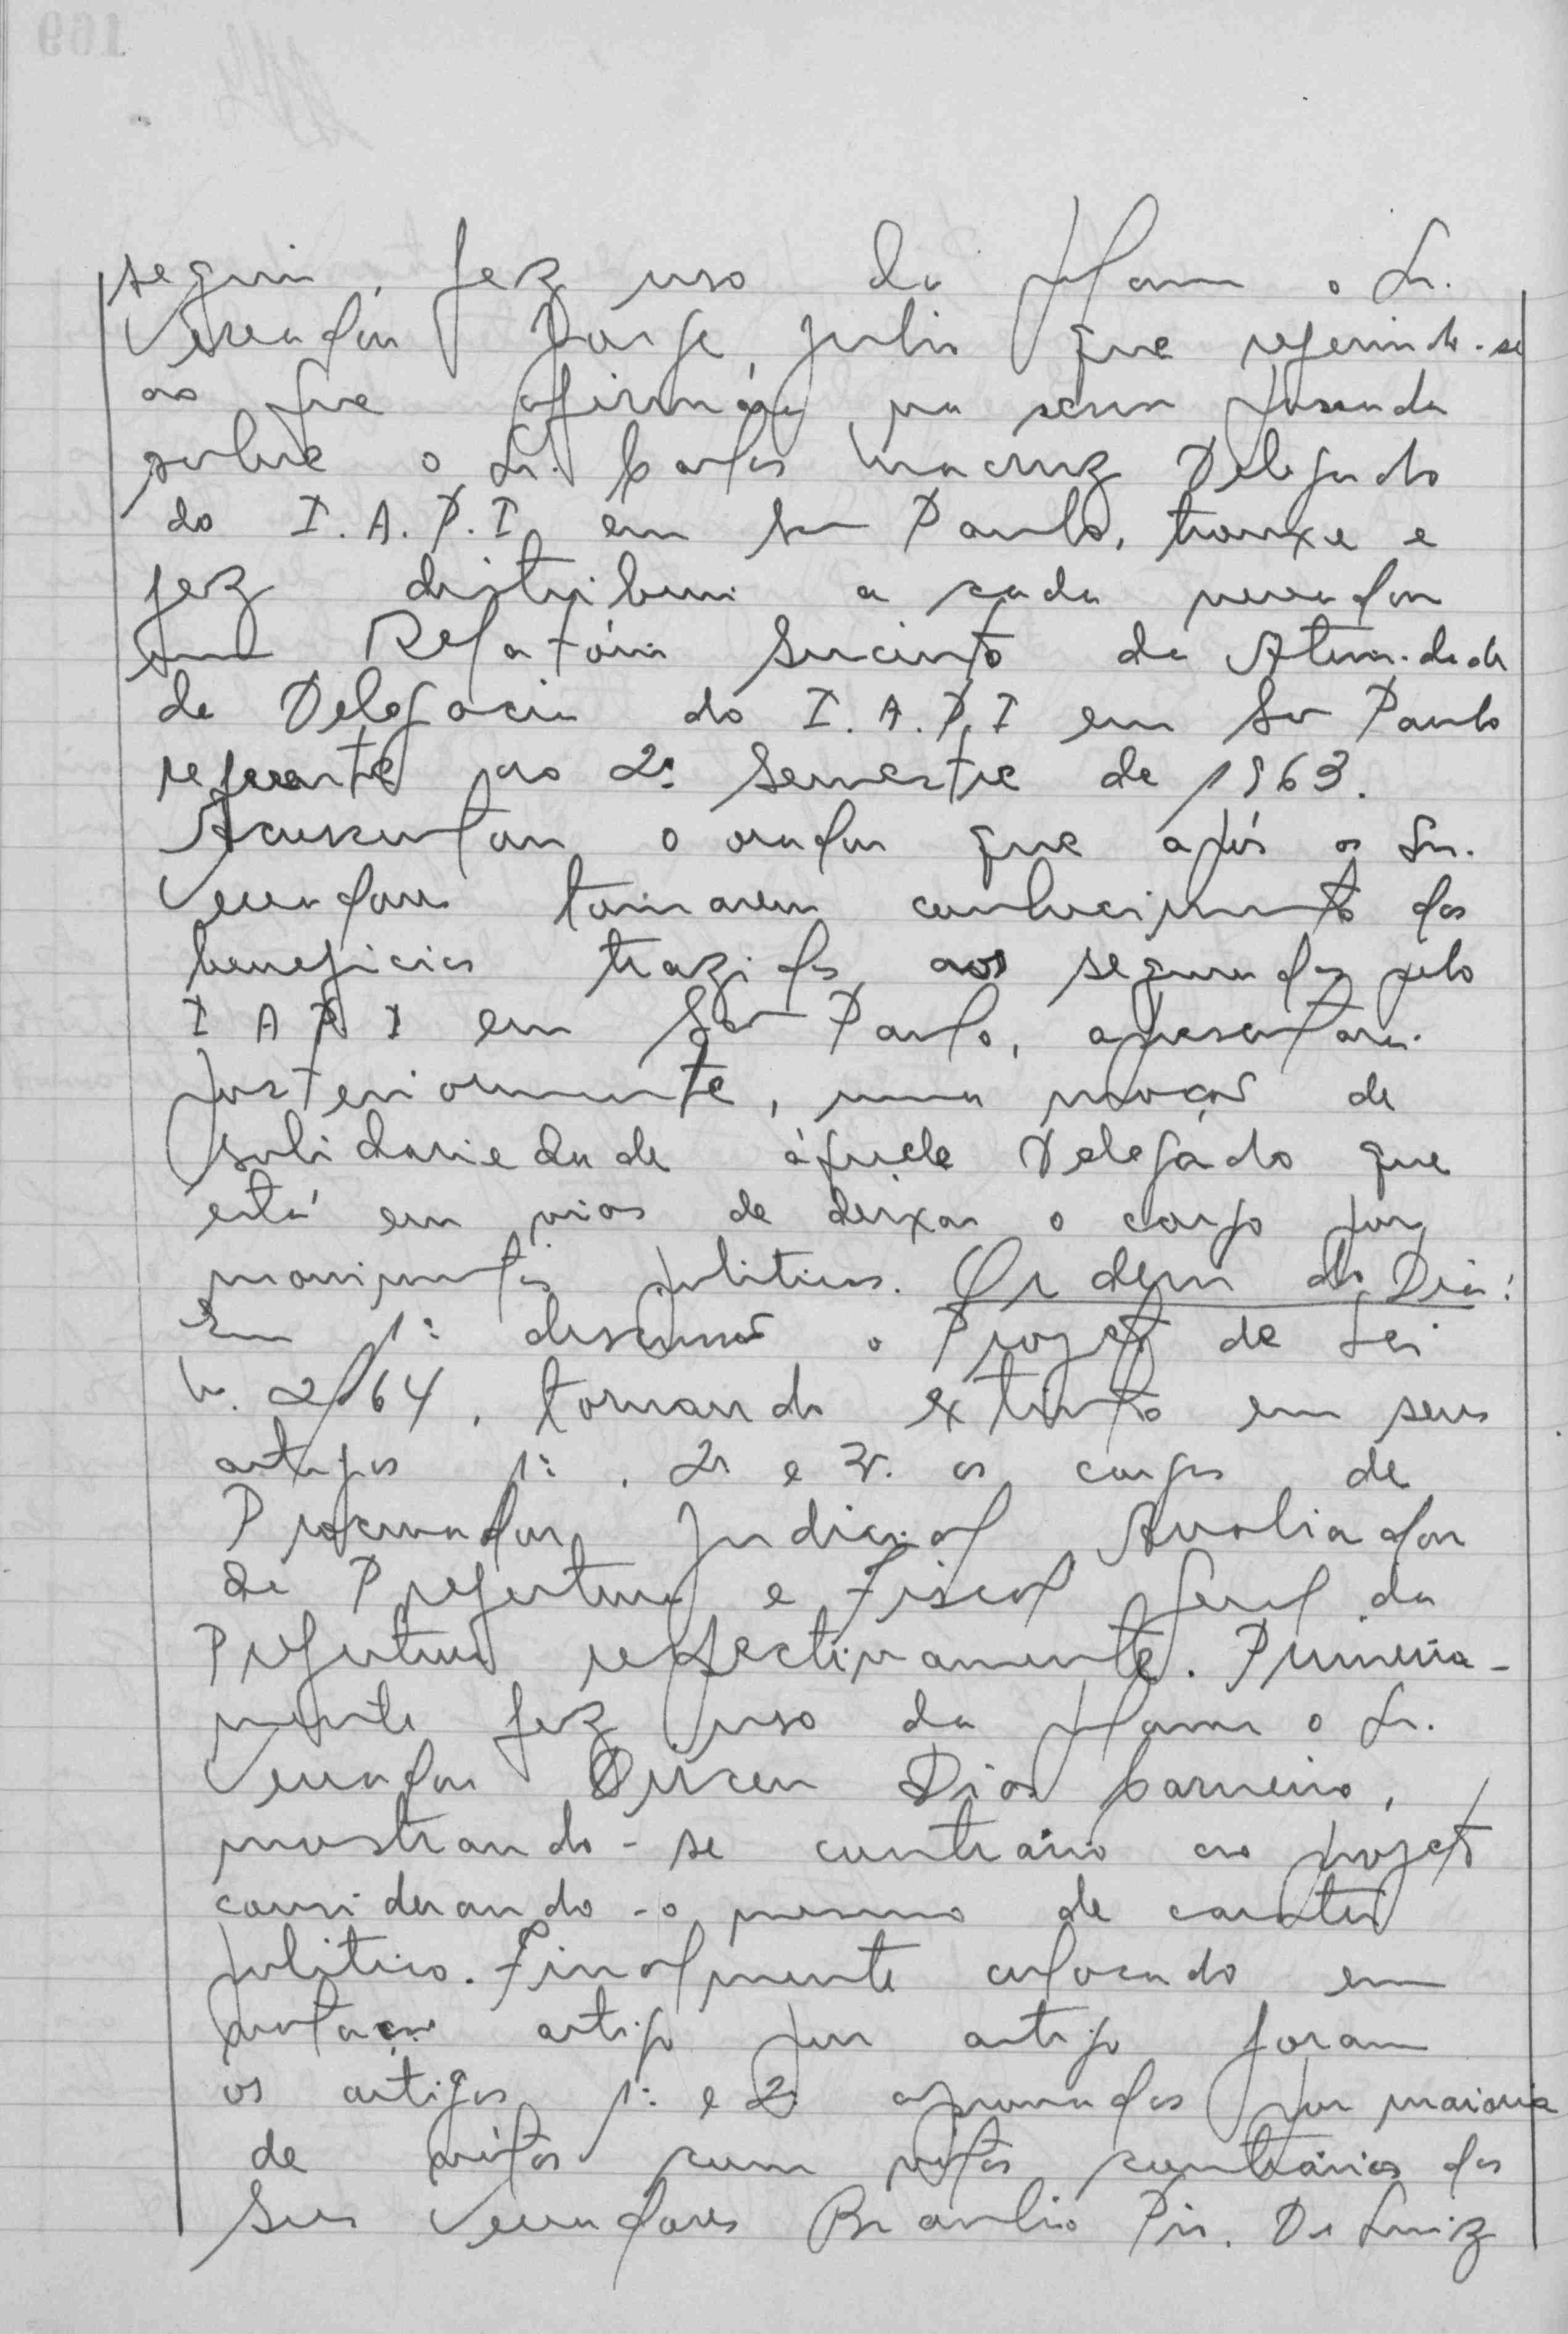 seguir, fez uso da palavra o Sr.
Vereador Jorge Julio que referindo-se
ao que afirmára na sessão passada
sobre o Sr. Carlos Macruz Delegado
do I.A.P.I em São Paulo, trouxe e
fez distribuir a cada vereador
um Relatório Sucinto de Atividade
da Delegacia do I.A.P.I em São Paulo
referente ao 2º Semestre de 1963.
Acrescentou o orador que após os Srs.
Vereadores tomarem conhecimento dos
beneficios trazidos aos segurados pelo
I A P I em São Paulo, apresentará
posteriormente, uma moção de
solidariedade áquele Delegádo que
está em vias de deixar o cargo por
movimentos politicos. Ordem do Dia:
Em 1ª discussão o Projeto de Lei
n. 2/64, tornando extinto em seus
artigos 1º, 2º e 3º os cargos de
Procurador Judicial Avaliador
da Prefeitura e Fiscal Geral da
Prefeitura respectivamente. Primeira-
mente fez uso da palavra o Sr.
Vereador Dirceu Dias Carneiro,
mostrando-se contrário ao projeto
considerando-o mesmo de carater
politico. Finalmente colocado em
votação artigo por artigo foram
os artigos 1º e 2º aprovados por maioria
de vótos com vótos contrários dos
Srs Vereadores Braulio Pio, Dr Luiz